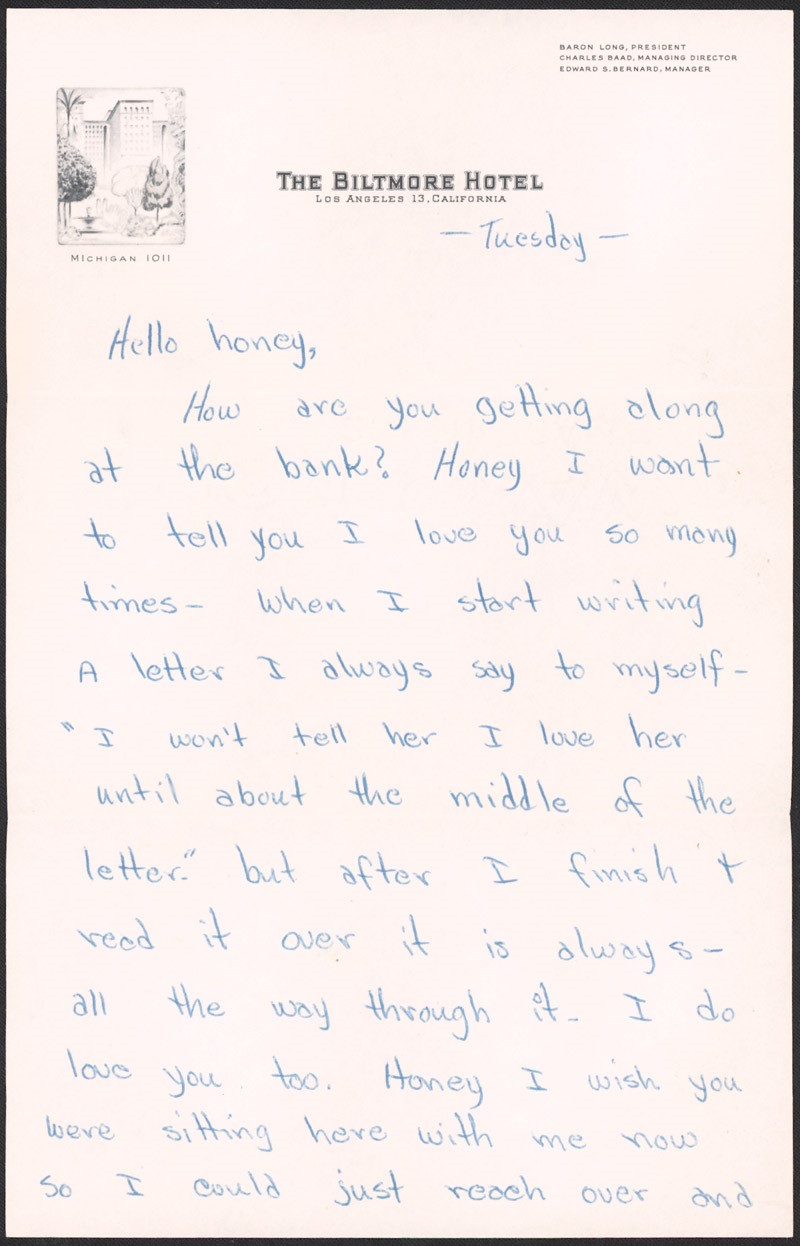 BARON LONG, PRESIDENT
CHARLES BAAD, MANAGING DIRECTOR
EDWARD S. BERNARD, MANAGER
THE BILTMORE HOTEL
LOS ANGELES 13, CALIFORNIA
MICHIGAN 1011
— Tuesday —
Hello honey,
How are you getting along
at the bank? Honey I want
to tell you I love you so many
times— when I start writing
A letter I always say to myself—
"I won't tell her I love her
until about the middle of the
letter." but after I finish +
read it over it is always—
all the way through it— I do
love you too. Honey I wish you
were sitting here with me now
so I could just reach over and